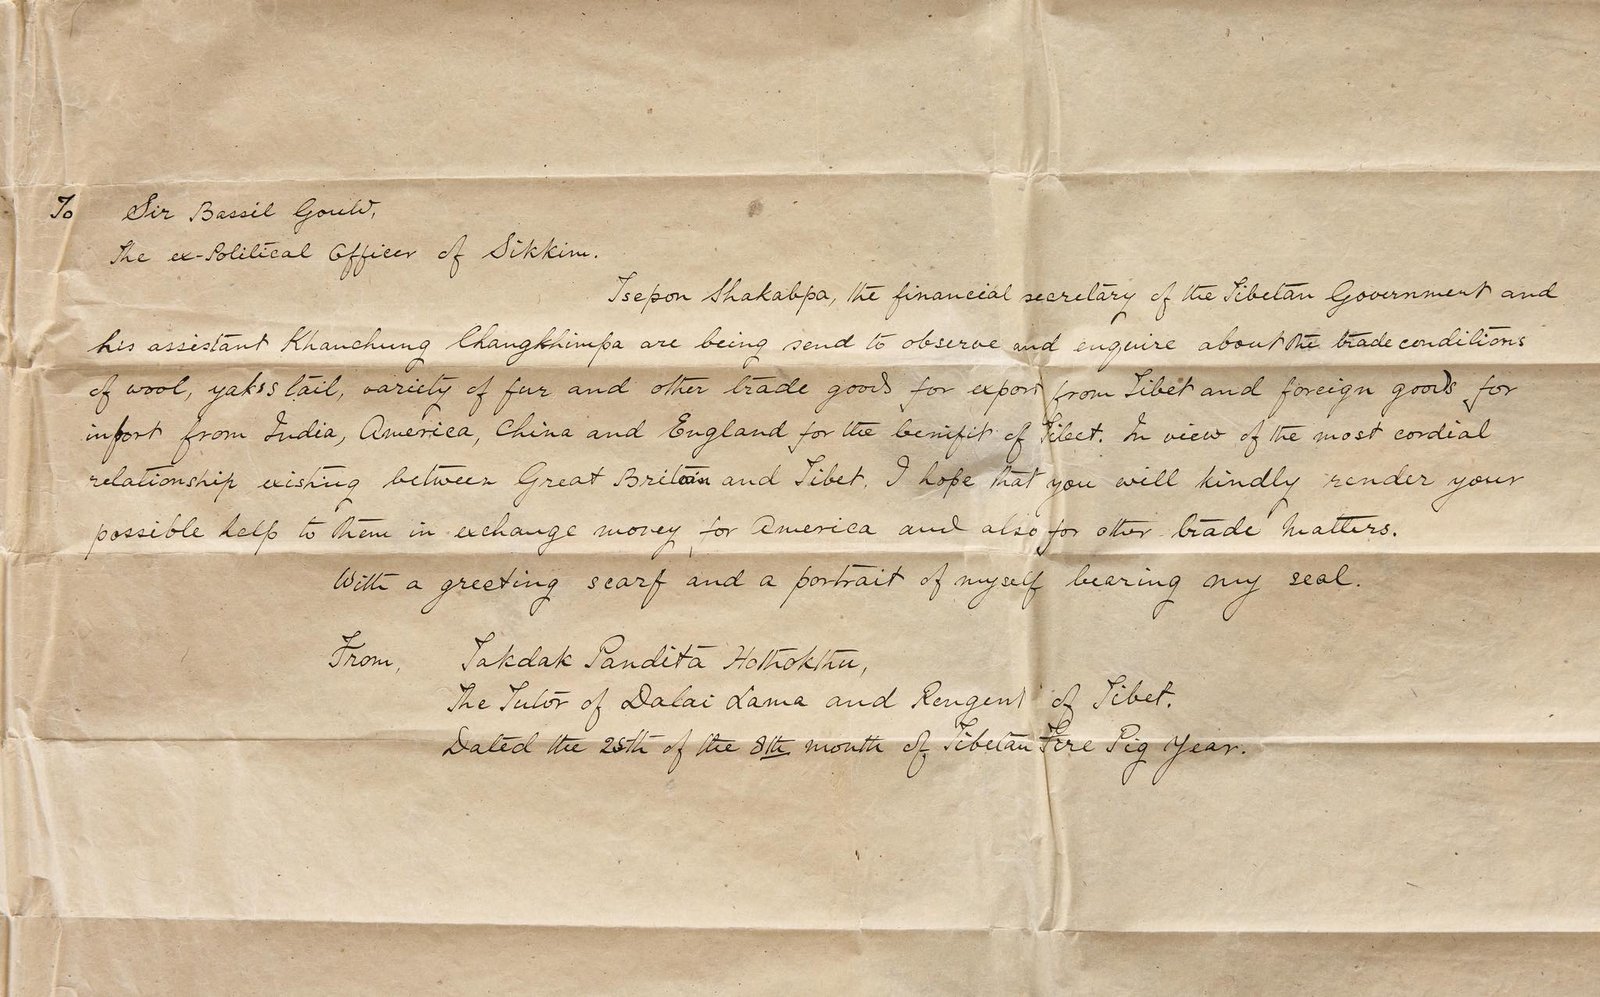 To Sir Bassil Gould,
The ex-Political Officer of Sikkim.
Tsepon Shakabpa, the financial secretary of the Tibetan Government and
his assistant Khanchung Changkhimpa are being send to observe and enquire about the trade conditions
of wool, yakss tail, variety of fur and other trade goods for export from Tibet and foreign goods for
inport from India, America, China and England for the benifit of Tibet. In view of the most cordial
relationship existing between Great Britain and Tibet, I hope that you will kindly render your
possible help to them in exchange money for America and also for other trade matters.
With a greeting scarf and a portrait of myself bearing my seal.
From, Takdak Pandita Hothokthu,
The Tutor of Dalai Lama and Rengent of Tibet.
Dated the 25th of the 8th month of Tibetan Fire Pig Year.